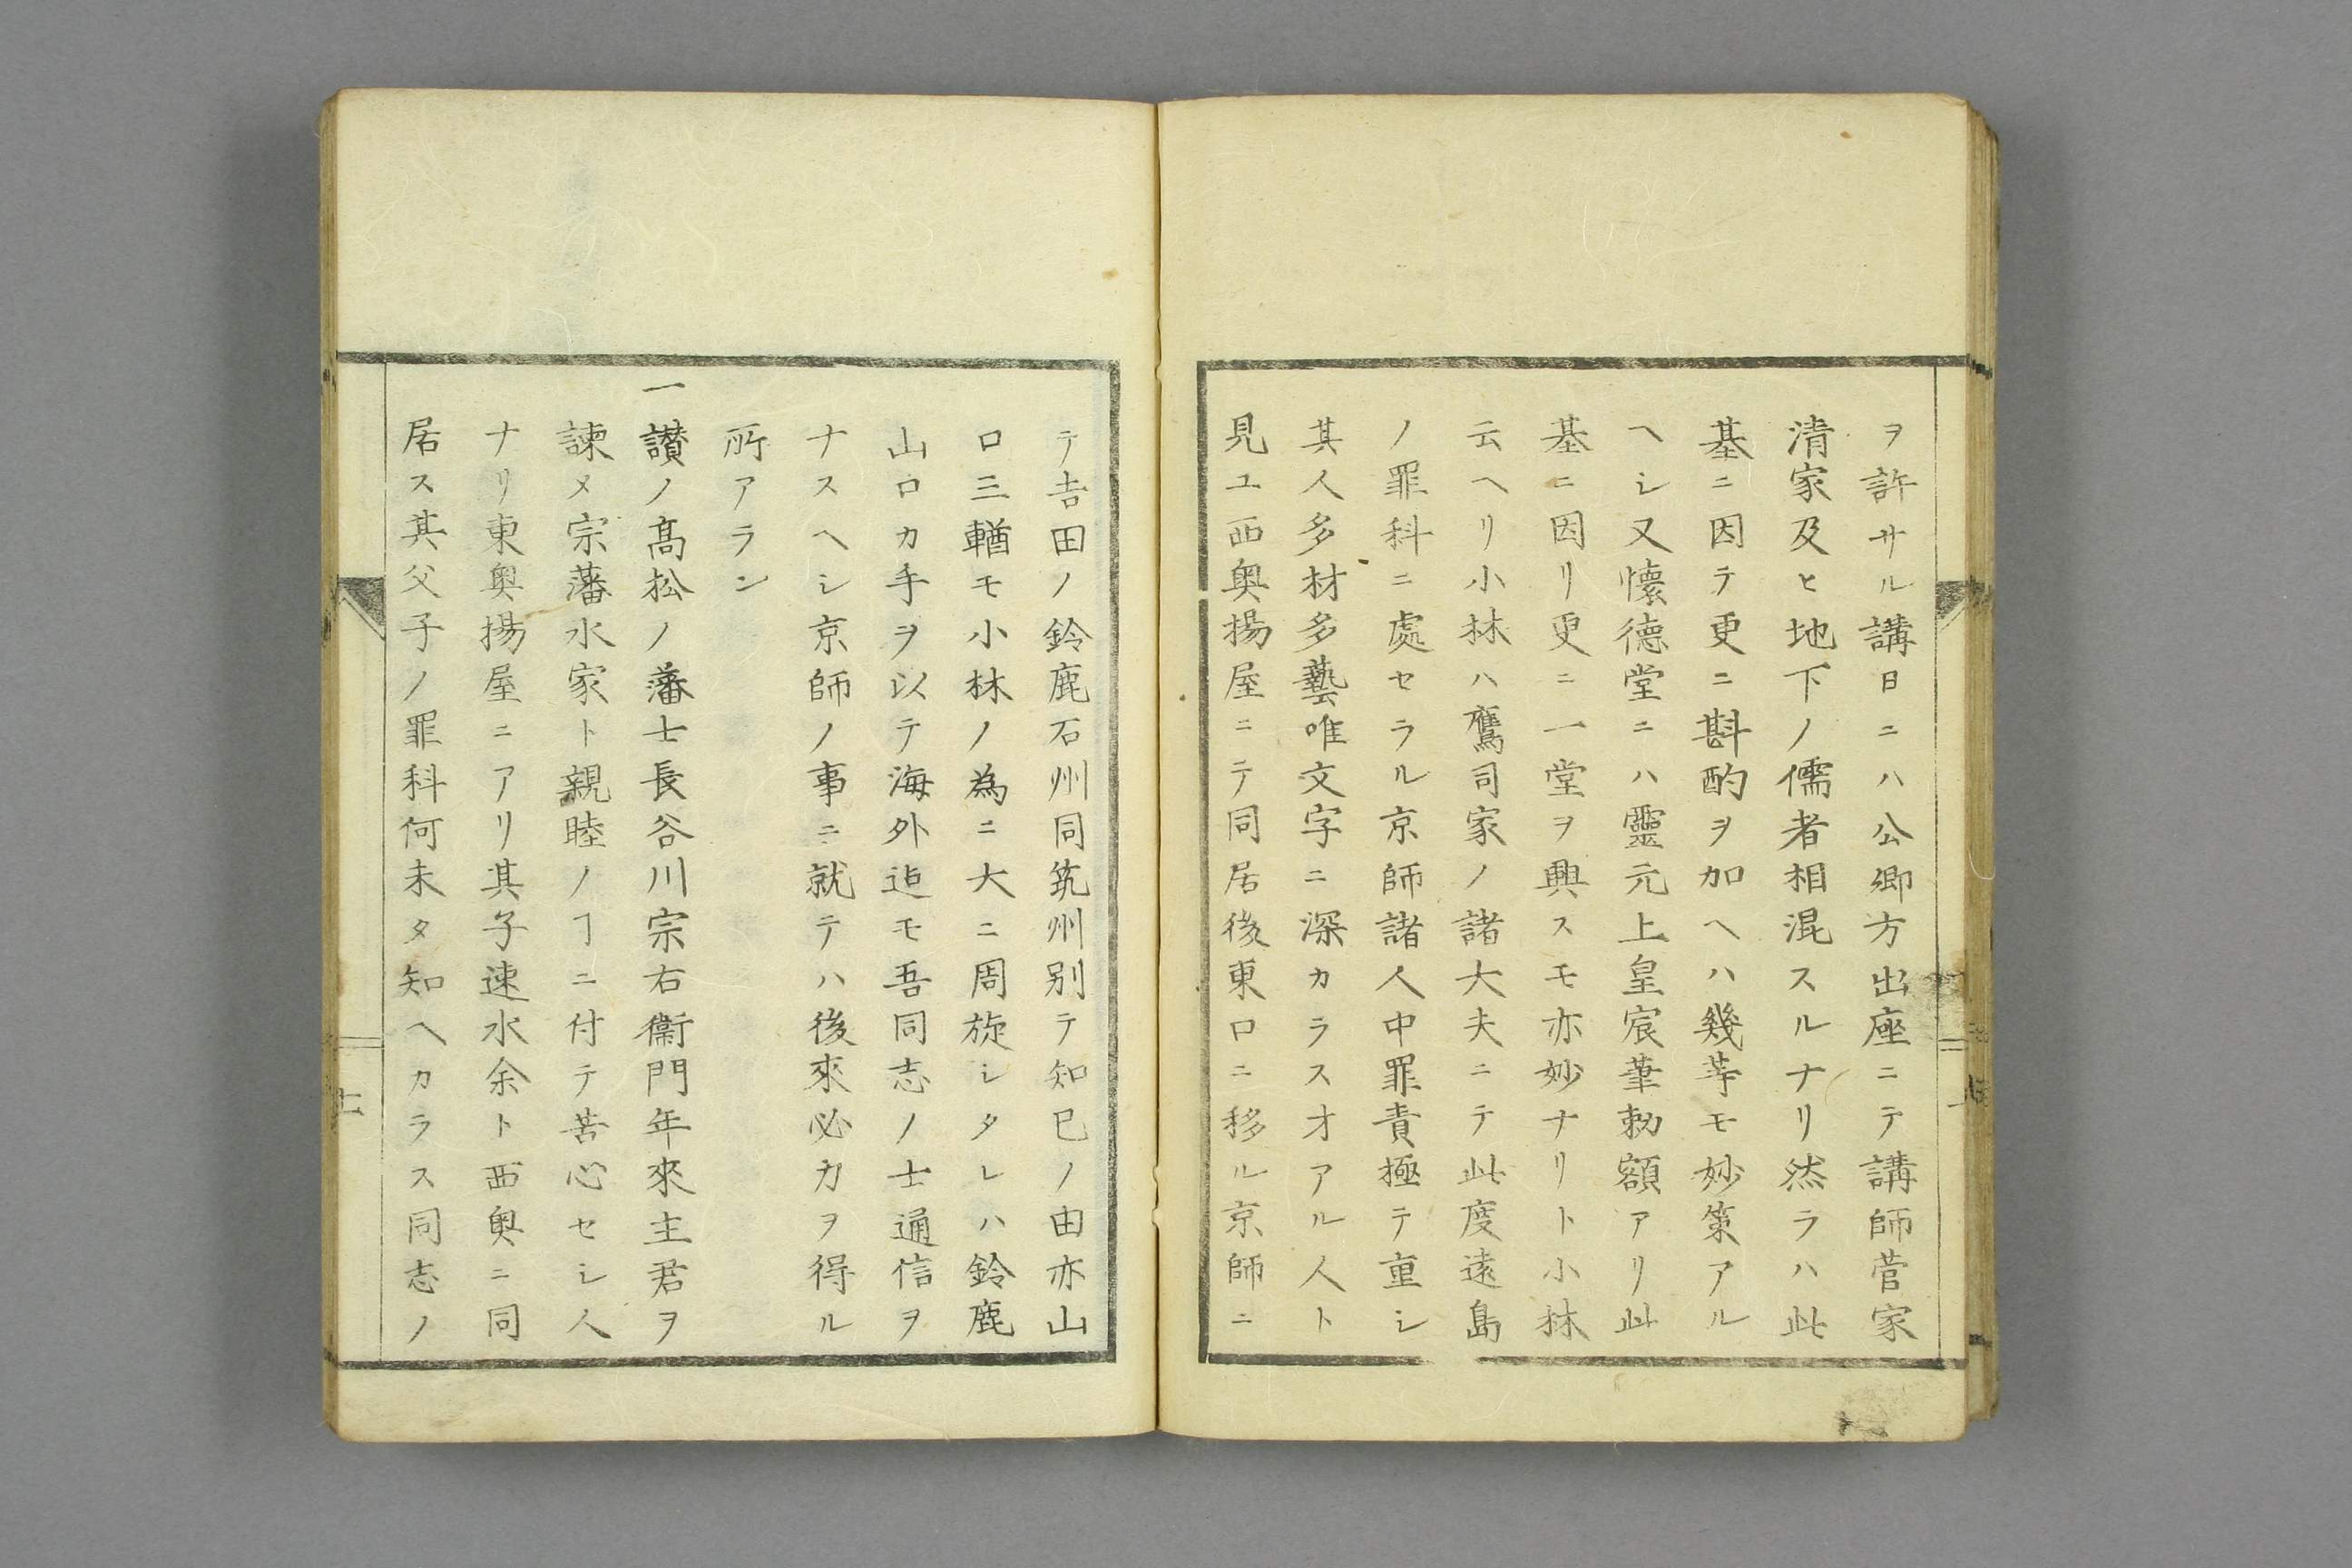 ヲ許サル講日ニハ公卿方出座ニテ講師菅家
清家及ヒ地下ノ儒者相混スルナリ然ラハ此
基ニ因テ更ニ斟酌ヲ加ヘハ幾等モ妙策アル
ヘシ又懐德堂ニハ靈元上皇宸筆勅額アリ此
基ニ因リ更ニ一堂ヲ興スモ亦妙ナリト小林
云ヘリ小林ハ鷹司家ノ諸大夫ニテ此度遠島
ノ罪科ニ處セラル京師諸人中罪責極テ重シ
其人多材多藝唯文字ニ深カラスオアル人ト
見ユ西奥揚屋ニテ同居後東口ニ移ル京師ニ
テ吉田ノ鈴鹿石州同筑州別テ知已ノ由亦山
口三輶モ小林ノ為ニ大ニ周旋シタレハ鈴鹿
山口カ手ヲ以テ海外迠モ吾同志ノ士通信ヲ
ナスヘシ京師ノ事ニ就テハ後來必力ヲ得ル
所アラン
一讃ノ髙松ノ藩士長谷川宗右衞門年來主君ヲ
諫メ宗藩水家ト親睦ノヿニ付テ苦心セシ人
ナリ東奥揚屋ニアリ其子速水余ト西奥ニ同
居ス其父子ノ罪科何未タ知ヘカラス同志ノ